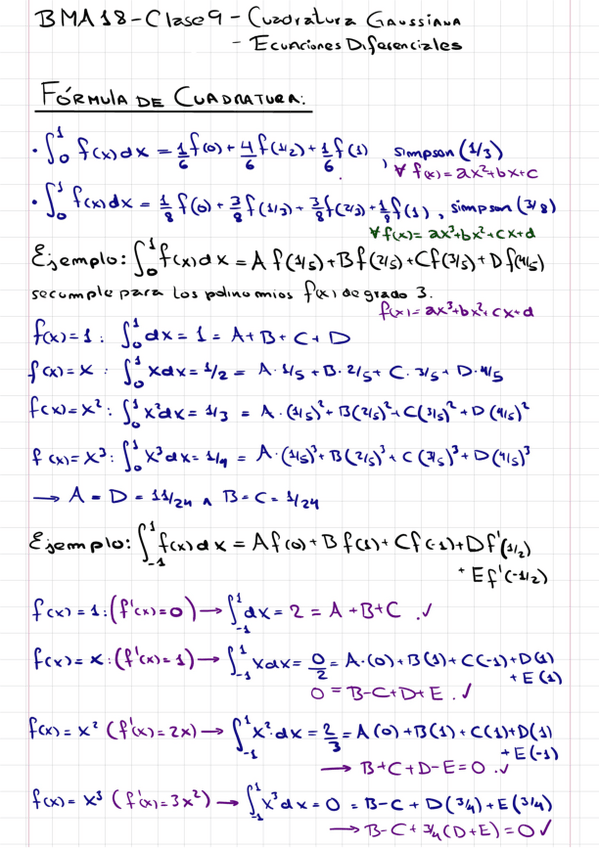 BMA18-Clase9-Cuadratura Gaussiana
- Ecuaciones Diferenciales
FÓRMULA DE CUADRATURA:
• ∫₀¹ f(x)dx = 1/6 f(0) + 4/6 f(1/2) + 1/6 f(1), simpson (1/3)
∀ f(x)=ax²+bx+c
• ∫₀¹ f(x)dx = 1/8 f(0) + 3/8 f(1/3) + 3/8 f(2/3) + 1/8 f(1), simpson (3/8)
∀f(x)= ax³+bx²+cx+d
Ejemplo: ∫₀¹ f(x)dx = A f(1/5) + B f(2/5) + C f(3/5) + D f(4/5)
se cumple para los polinomios f(x) de grado 3.
f(x)=ax³+bx²+cx+d
f(x)=1 : ∫₀¹ dx = 1 = A+B+C+D
f(x)=x : ∫₀¹ xdx = 1/2 = A·1/5 + B·2/5 + C·3/5 + D·4/5
f(x)=x² : ∫₀¹ x²dx = 1/3 = A·(1/5)² + B(2/5)² + C(3/5)² + D(4/5)²
f(x)=x³ : ∫₀¹ x³dx = 1/4 = A·(1/5)³ + B(2/5)³ + C(3/5)³ + D(4/5)³
→ A = D = 11/24 ∧ B = C = 1/24
Ejemplo: ∫₋₁¹ f(x)dx = A f(0) + B f(1) + C f(-1) + D f'(1/2)
+ E f'(-1/2)
f(x)=1:(f'(x)=0) → ∫₋₁¹ dx = 2 = A+B+C .✓
f(x)=x:(f'(x)=1) → ∫₋₁¹ xdx = 0/2 = A·(0)+B(1)+C(-1)+D(1)
+E(1)
0 = B-C+D+E .✓
f(x)=x² (f'(x)=2x) → ∫₋₁¹ x²dx = 2/3 = A(0)+B(1)+C(1)+D(1)
+E(-1)
→ B+C+D-E=0 .✓
f(x)=x³ (f'(x)=3x²) → ∫₋₁¹ x³dx = 0 = B-C + D(3/4)+E(3/4)
→ B-C+3/4(D+E)=0✓